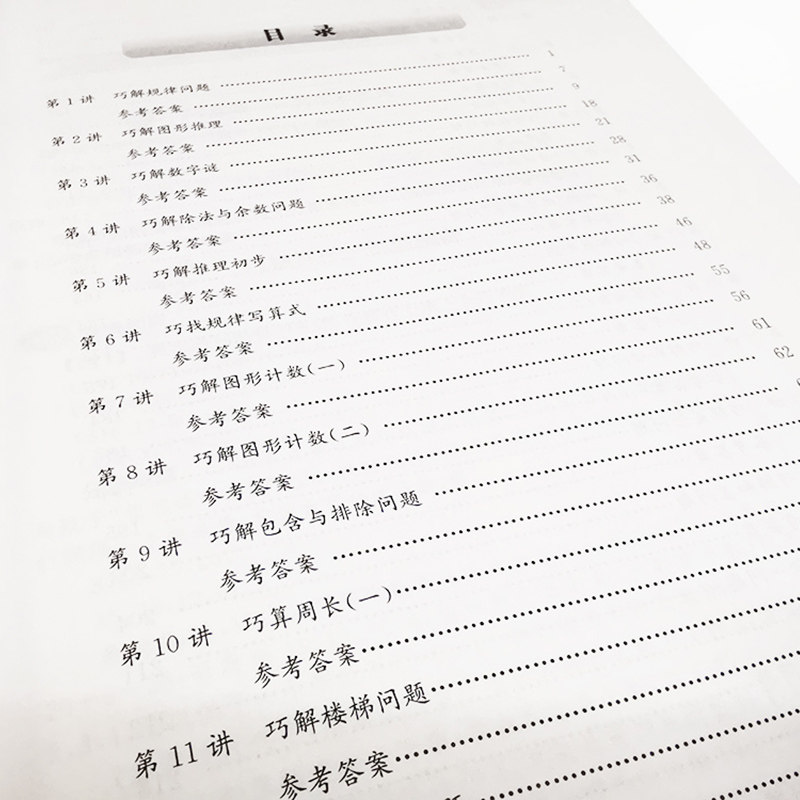 目 录
第1讲 巧解规律问题 ………… 1
参考答案 ………… 7
第2讲 巧解图形推理 ………… 9
参考答案 ………… 18
第3讲 巧解数字谜 ………… 21
参考答案 ………… 28
第4讲 巧解除法与余数问题 ………… 31
参考答案 ………… 36
第5讲 巧解推理初步 ………… 38
参考答案 ………… 46
第6讲 巧找规律写算式 ………… 48
参考答案 ………… 55
第7讲 巧解图形计数(一) ………… 56
参考答案 ………… 61
第8讲 巧解图形计数(二) ………… 62
参考答案 …………
第9讲 巧解包含与排除问题 …………
参考答案 …………
第10讲 巧算周长(一) …………
参考答案 …………
第11讲 巧解楼梯问题 …………
参考答案 …………